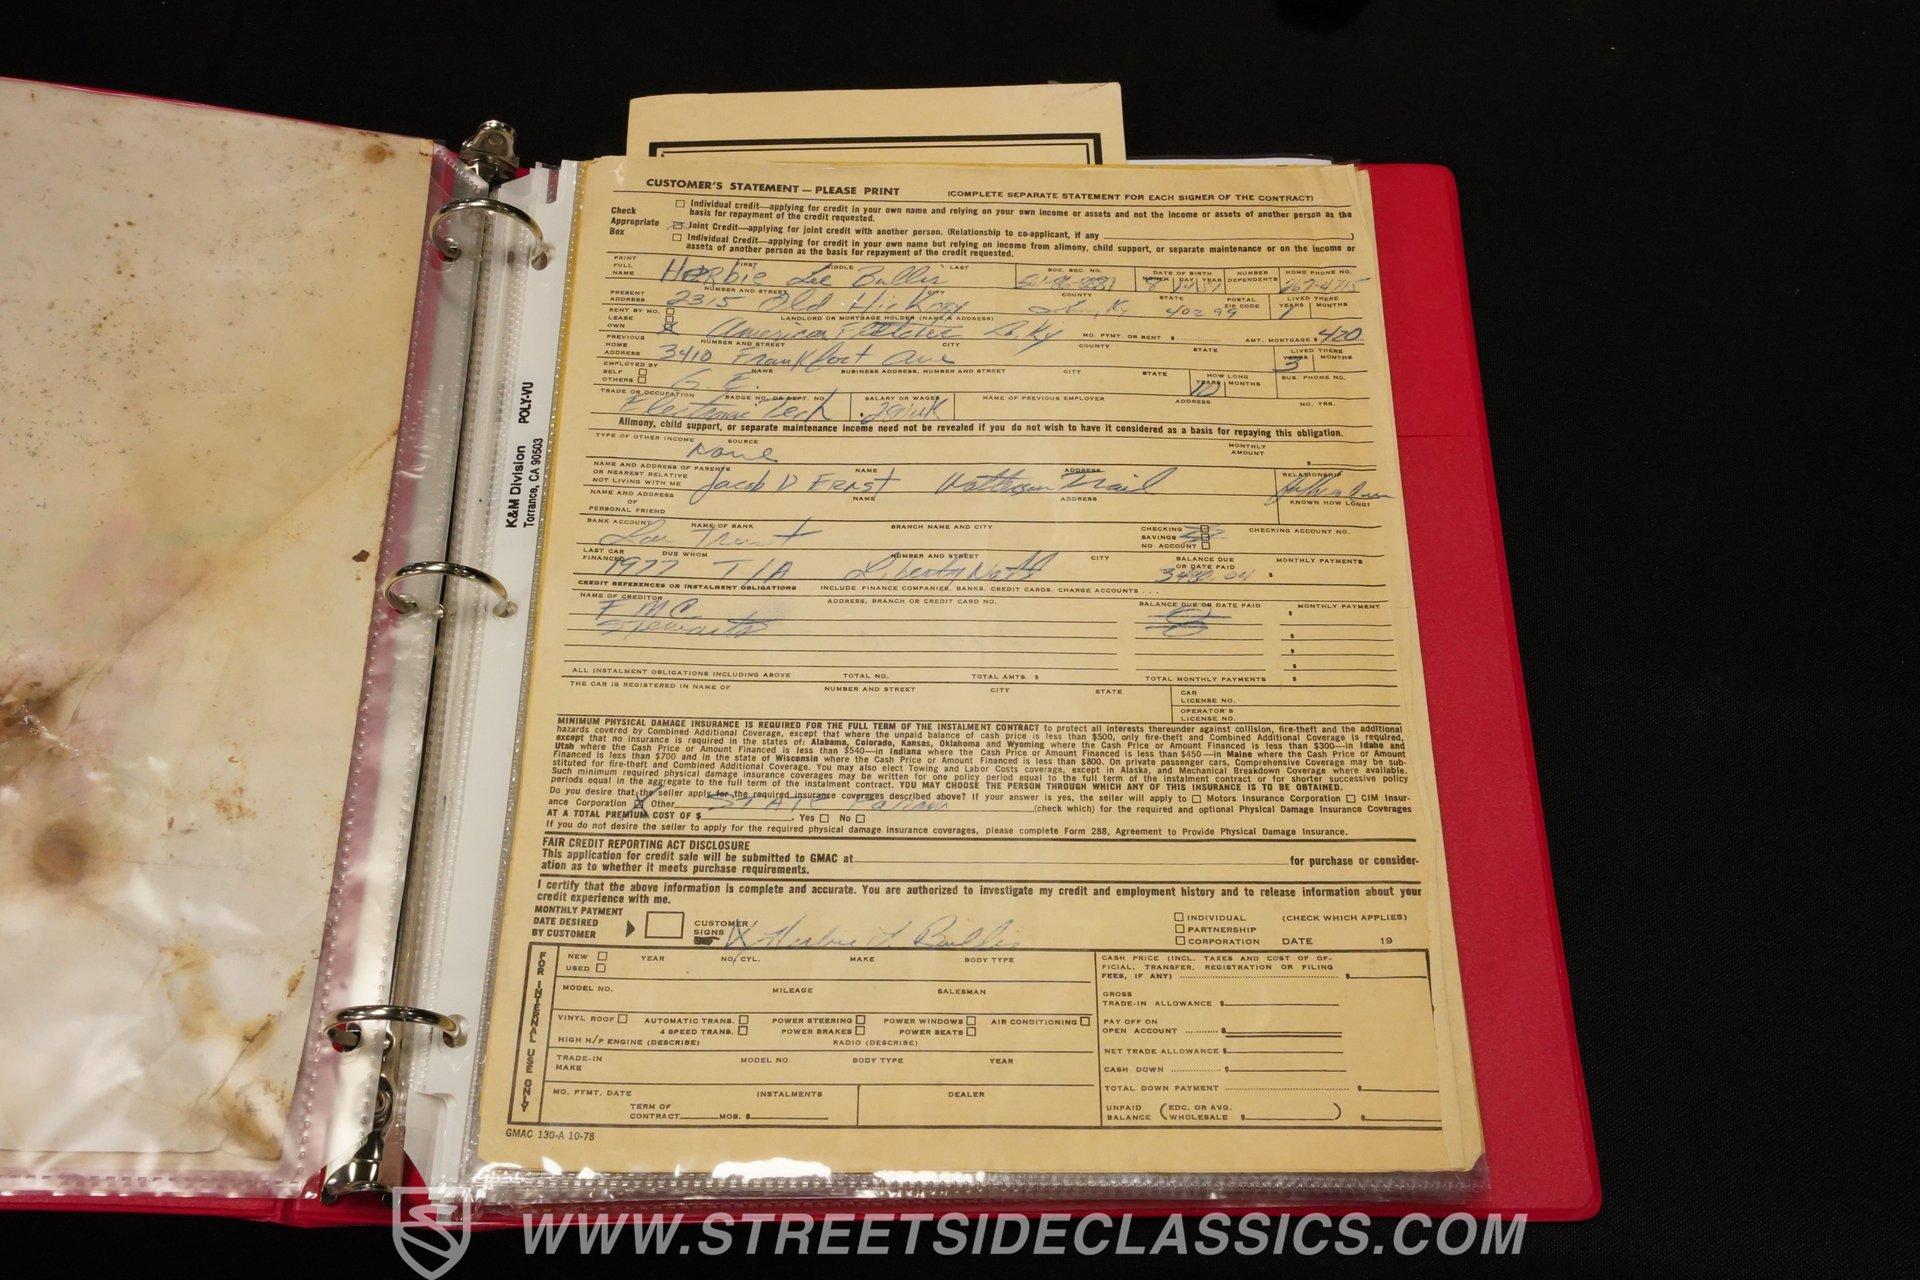 CUSTOMER'S STATEMENT — PLEASE PRINT (COMPLETE SEPARATE STATEMENT FOR EACH SIGNER OF THE CONTRACT)
Check Appropriate Box
Individual credit—applying for credit in your own name and relying on your own income or assets and not the income or assets of another person as the
basis for repayment of the credit requested.
Joint Credit—applying for joint credit with another person. (Relationship to co-applicant, if any )
Individual Credit—applying for credit in your own name but relying on income from alimony, child support, or separate maintenance or on the income or
assets of another person as the basis for repayment of the credit requested.
PRINT FULL NAME FIRST MIDDLE LAST SOC. SEC. NO. DATE OF BIRTH MONTH DAY YEAR NUMBER DEPENDENTS HOME PHONE NO.
Herbie Lee Bullis
PRESENT ADDRESS NUMBER AND STREET CITY COUNTY STATE POSTAL ZIP CODE LIVED THERE YEARS MONTHS
2315 Old Hickory Ky 40299
RENT BY MO. LEASE OWN LANDLORD OR MORTGAGE HOLDER (NAME & ADDRESS) MO. PYMT. OR RENT $ AMT. MORTGAGE $ 420
American Fletcher Ky
PREVIOUS HOME ADDRESS NUMBER AND STREET CITY COUNTY STATE LIVED THERE YEARS MONTHS
3410 Frankfort Ave 3
EMPLOYED BY SELF OTHERS NAME BUSINESS ADDRESS, NUMBER AND STREET CITY STATE HOW LONG YEARS MONTHS BUS. PHONE NO.
G. E. 10
TRADE OR OCCUPATION BADGE NO. OR DEPT. NO. SALARY OR WAGES NAME OF PREVIOUS EMPLOYER ADDRESS NO. YRS.
Electronic Tech $
Alimony, child support, or separate maintenance income need not be revealed if you do not wish to have it considered as a basis for repaying this obligation.
TYPE OF OTHER INCOME SOURCE MONTHLY AMOUNT $
None
NAME AND ADDRESS OF PARENTS OR NEAREST RELATIVE NOT LIVING WITH ME NAME ADDRESS RELATIONSHIP
Jacob D Ernst Watterson Trail
NAME AND ADDRESS OF PERSONAL FRIEND NAME ADDRESS KNOWN HOW LONG?
BANK ACCOUNT NAME OF BANK BRANCH NAME AND CITY CHECKING SAVINGS NO ACCOUNT CHECKING ACCOUNT NO.
Lou Trust
LAST CAR FINANCED DUE WHOM NUMBER AND STREET CITY BALANCE DUE OR DATE PAID MONTHLY PAYMENTS $
1977 T/A Liberty Natl
CREDIT REFERENCES OR INSTALMENT OBLIGATIONS INCLUDE FINANCE COMPANIES, BANKS, CREDIT CARDS, CHARGE ACCOUNTS . . .
NAME OF CREDITOR ADDRESS, BRANCH OR CREDIT CARD NO. BALANCE DUE OR DATE PAID MONTHLY PAYMENT
F M C $
Stewarts $
$
$
ALL INSTALMENT OBLIGATIONS INCLUDING ABOVE TOTAL NO. TOTAL AMTS. $ TOTAL MONTHLY PAYMENTS $
THE CAR IS REGISTERED IN NAME OF NUMBER AND STREET CITY STATE CAR LICENSE NO.
OPERATOR'S LICENSE NO.
MINIMUM PHYSICAL DAMAGE INSURANCE IS REQUIRED FOR THE FULL TERM OF THE INSTALMENT CONTRACT to protect all interests thereunder against collision, fire-theft and the additional
hazards covered by Combined Additional Coverage, except that where the unpaid balance of cash price is less than $500, only fire-theft and Combined Additional Coverage is required,
except that no insurance is required in the states of: Alabama, Colorado, Kansas, Oklahoma and Wyoming where the Cash Price or Amount Financed is less than $300—in Idaho and
Utah where the Cash Price or Amount Financed is less than $540—in Indiana where the Cash Price or Amount Financed is less than $450—in Maine where the Cash Price or Amount
Financed is less than $700 and in the state of Wisconsin where the Cash Price or Amount Financed is less than $800. On private passenger cars, Comprehensive Coverage may be sub-
stituted for fire-theft and Combined Additional Coverage. You may also elect Towing and Labor Costs coverage, except in Alaska, and Mechanical Breakdown Coverage where available.
Such minimum required physical damage insurance coverages may be written for one policy period equal to the full term of the instalment contract or for shorter successive policy
periods equal in the aggregate to the full term of the instalment contract. YOU MAY CHOOSE THE PERSON THROUGH WHICH ANY OF THIS INSURANCE IS TO BE OBTAINED.
Do you desire that the seller apply for the required insurance coverages described above? If your answer is yes, the seller will apply to Motors Insurance Corporation CIM Insur-
ance Corporation Other STATE Farm (check which) for the required and optional Physical Damage Insurance Coverages
AT A TOTAL PREMIUM COST OF $ . Yes No
If you do not desire the seller to apply for the required physical damage insurance coverages, please complete Form 288, Agreement to Provide Physical Damage Insurance.
FAIR CREDIT REPORTING ACT DISCLOSURE
This application for credit sale will be submitted to GMAC at for purchase or consider-
ation as to whether it meets purchase requirements.
I certify that the above information is complete and accurate. You are authorized to investigate my credit and employment history and to release information about your
credit experience with me.
MONTHLY PAYMENT DATE DESIRED BY CUSTOMER CUSTOMER SIGNS X Herbie L Bullis
INDIVIDUAL (CHECK WHICH APPLIES)
PARTNERSHIP
CORPORATION DATE 19
FOR INTERNAL USE ONLY
NEW USED YEAR NO. CYL. MAKE BODY TYPE
MODEL NO. MILEAGE SALESMAN
VINYL ROOF AUTOMATIC TRANS. POWER STEERING POWER WINDOWS AIR CONDITIONING
4 SPEED TRANS. POWER BRAKES POWER SEATS
HIGH H/P ENGINE (DESCRIBE) RADIO (DESCRIBE)
TRADE-IN MAKE MODEL NO. BODY TYPE YEAR
MO. PYMT. DATE INSTALMENTS DEALER
TERM OF CONTRACT MOS. $
CASH PRICE (INCL. TAXES AND COST OF OF-
FICIAL, TRANSFER, REGISTRATION OR FILING
FEES, IF ANY) $
GROSS
TRADE-IN ALLOWANCE $
PAY OFF ON
OPEN ACCOUNT $
NET TRADE ALLOWANCE $
CASH DOWN $
TOTAL DOWN PAYMENT $
UNPAID BALANCE (EDC. OR AVG. WHOLESALE $ ) $
GMAC 130-A 10-78
K&M Division POLY-VU
Torrance, CA 90503
WWW.STREETSIDECLASSICS.COM